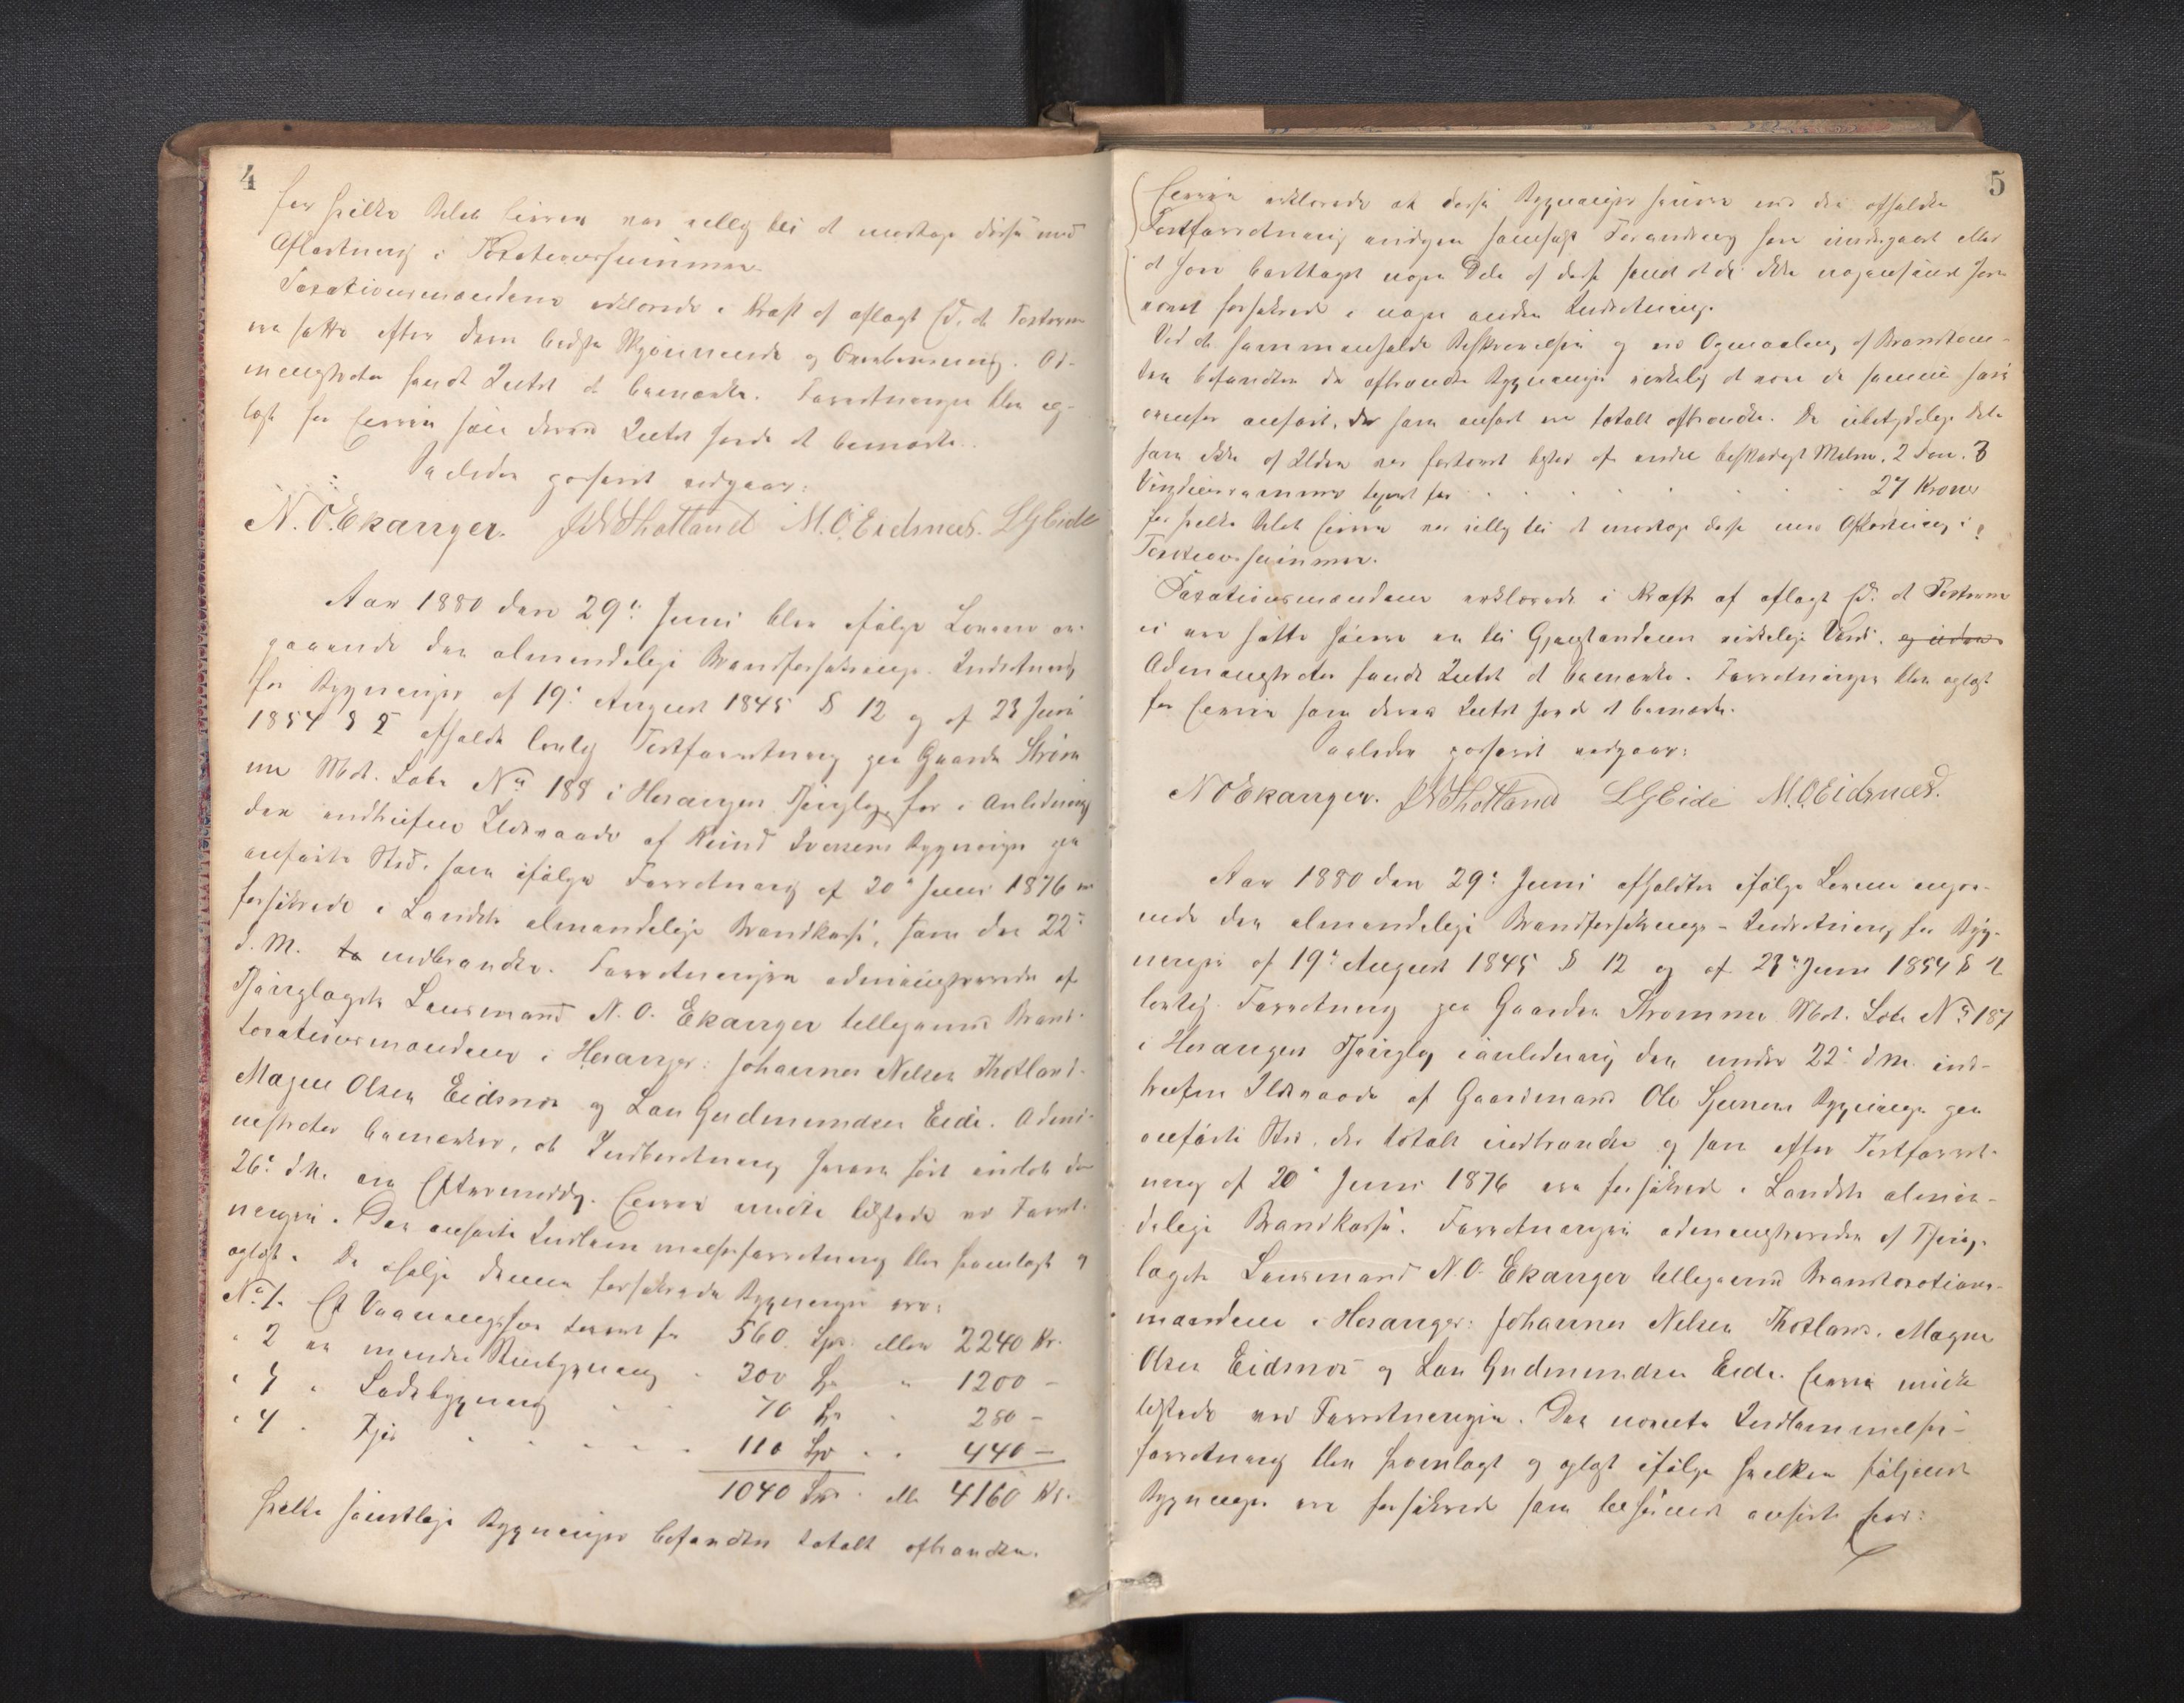 4
for hvilke Beløb Eieren var villig til at modtage disse mod
Afkortning i Taxationssummen.
Taxationsmændene erklærede i Kraft af aflagt Ed, at Taxterne
ere satte efter deres bedste Skjønnende og Overbevisning. Ad-
ministrator fandt Intet at bemærke. Forretningen blev op-
læst for Eieren som derved Intet havde at bemærke.
Saaledes passeret vedgaar:
N. O. Ekanger. JN Thotland M. O. Eidsnes. LGEide
Aar 1880 den 29de Juni blev ifølge Lovene an-
gaaende den almindelige Brandforsikrings-Indretning
for Bygninger af 19de August 1845 § 12 og af 23 Juni
1854 § 2 afholdt lovlig Taxtforretning paa Gaarden Strøm-
me Mat. Løbe No 188 i Hosanger Thinglag for i Anledning
den indtrufne Ildsvaade af Knud Iversens Bygninger paa
anførte Sted, som ifølge Forretning af 20de Juni 1876 er
forsikrede i Landets almindelige Brandkasse, som den 22de
d. M. nedbrændte. Forretningen administreredes af
Thinglagets Lensmand N. O. Ekanger tilligemed Brand-
taxationsmændene i Hosanger: Johannes Nilsen Thotland,
Magne Olsen Eidsnes og Lars Gudmundsen Eide. Admi-
nistrator bemærker, at Indberetning herom først indløb den
26de d.M. om Eftermiddag. Eieren mødte tilstede ved Forret-
ningen. Den anførte Indlemmelsesforretning blev fremlagt og
oplæst. De ifølge denne forsikrede Bygninger ere:
No 1. Et Vaaningshus taxeret for 560 Spd. eller 2240 Kr.
" 2 en mindre Stuebygning " 300 Spd " 1200 –
" 3 " Ladebygning " 70 Spd " 280 –
" 4 " Fjøs " 110 Spd " 440 –
1040 Spd. eller 4160 Kr.
hvilke samtlige Bygninger befandtes totalt afbrændte.
5
Eieren erklærede at disse Bygninger siden den afholdte
Taxtforretning ei nogen saadan Forandring have undergaaet eller
at have borttaget nogen Dele af disse samt at de ikke nogensinde have
været forsikrede i nogen anden Indretning.
Ved at sammenholde Beskrivelsen og ved Opmaaling af Brandtom-
ten befandtes de afbrændte Bygninger virkelig at være de samme som
ovenfor anført, der som anført er totalt afbrændte. De ubetydelige Dele
som ikke af Ilden var fortæret bestod af endel beskadiget Malm, 2 Den. 3
Vinduesrammer taxeret for . . . . . . . . 27 Kroner
for hvilke Beløb Eieren var villig til at modtage disse mod Afkortning i
Taxtationssummen.
Taxationsmændene erklærede i Kraft af aflagt Ed. at Taxterne
ei ere satte høiere en til Gjenstandenes virkelige Værdi,
Administrator fandt Intet at bemærke. Forretningen blev oplæst
for Eieren som derved Intet havde at bemærke.
Saaledes passeret vedgaar:
N O Ekanger. JN Thotland LGEide M.O Eidsnes.
Aar 1880 den 29de Juni afholdtes ifølge Lovene angaa-
ende den almindelige Brandforsikrings-Indretning for Byg-
ninger af 19de August 1845 § 12 og af 23de Juni 1854 § 2
lovlig Forretning paa Gaarden Strømme Mat. Løbe No 187
i Hosangers Thinglag i anledning den under 22de d.M. ind-
trufne Ildsvaade af Gaardmand Ole Bygninger paa
anførte Sted, der totalt nedbrændte og som efter Taxtforret-
ning af 20de Juni 1876 ere forsikrede i Landets almin-
delige Brandkasse. Forretningen administreredes af Thing-
lagets Lensmand N. O. Ekanger tilligemed Brandtaxations-
mændene i Hosanger: Johannes Nilsen Thotland, Magne
Olsen Eidsnes og Lars Gudmundsen Eide. Eieren mødte
tilstede ved Forretningen. Den nævnte Indlemmelses-
forretning blev fremlagt og oplæst ifølge hvilken følgende
Bygninger ere forsikrede som anført for: